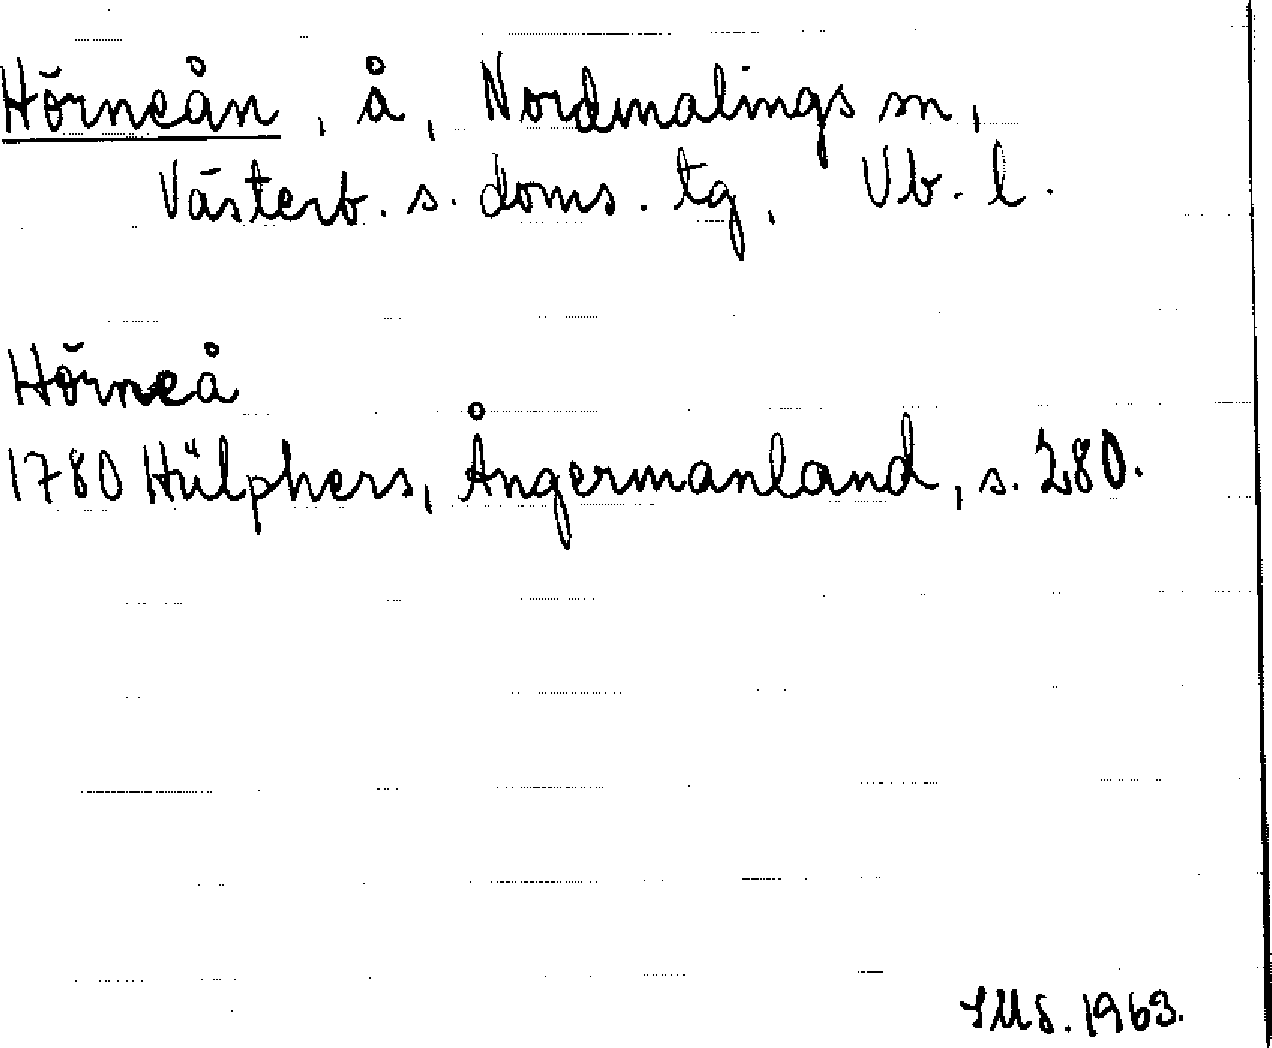 Hörneån, å, Nordmalings sn,
Västerb. s. doms. tg, Vb. l.
Hörneå
1780 Hülphers, Ångermanland, s. 280.
1963.